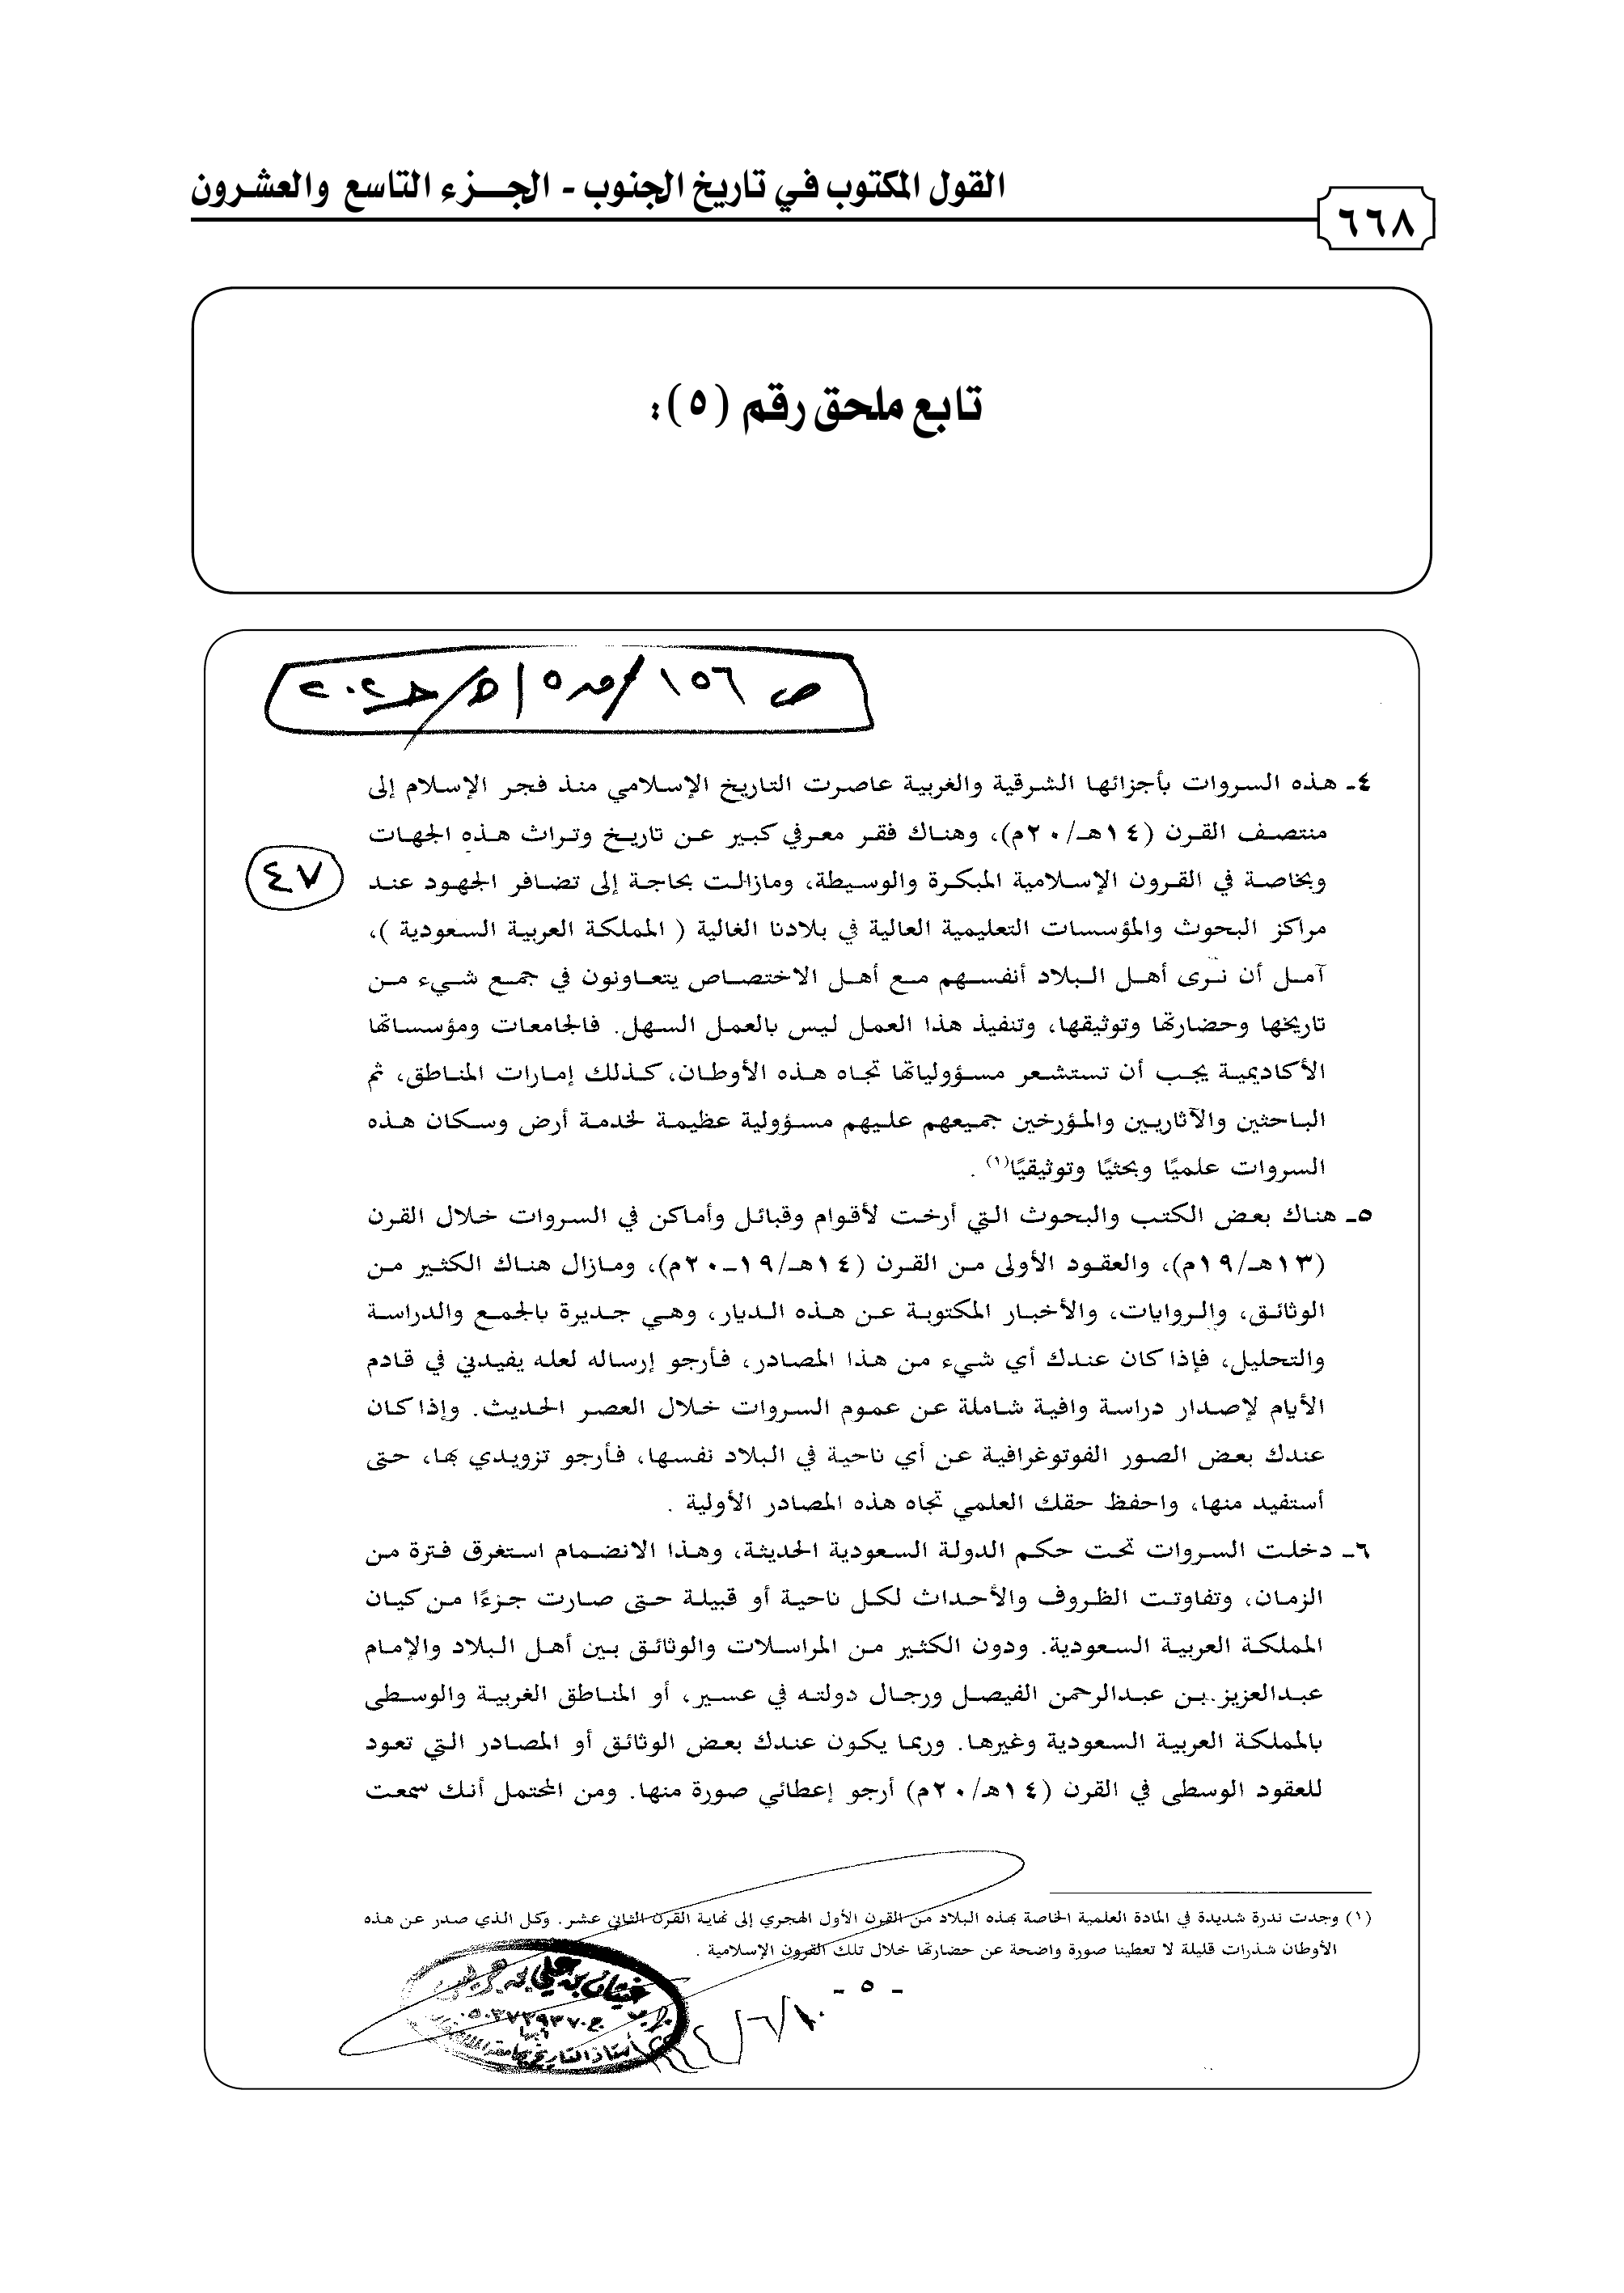 القول المكتوب في تاريخ الجنوب - الجـــزء التاسع والعشـرون
٦٦٨
تابع ملحق رقم (٥):
ص ١٥٦
٤٧
٤ـ هذه السروات بأجزائها الشرقية والغربية عاصرت التاريخ الإسلامي منذ فجر الإسلام إلى
منتصف القرن (١٤هـ/٢٠م)، وهناك فقر معرفي كبير عن تاريخ وتراث هذه الجهات
وبخاصة في القرون الإسلامية المبكرة والوسيطة، ومازالت بحاجة إلى تضافر الجهود عند
مراكز البحوث والمؤسسات التعليمية العالية في بلادنا الغالية ( المملكة العربية السعودية )،
آمل أن نرى أهل البلاد أنفسهم مع أهل الاختصاص يتعاونون في جمع شيء من
تاريخها وحضارتها وتوثيقها، وتنفيذ هذا العمل ليس بالعمل السهل. فالجامعات ومؤسساتها
الأكاديمية يجب أن تستشعر مسؤولياتها تجاه هذه الأوطان، كذلك إمارات المناطق، ثم
الباحثين والآثاريين والمؤرخين جميعهم عليهم مسؤولية عظيمة لخدمة أرض وسكان هذه
السروات علميًا وبحثيًا وتوثيقيًا(١) .
٥ـ هناك بعض الكتب والبحوث التي أرخت لأقوام وقبائل وأماكن في السروات خلال القرن
(١٣هـ/١٩م)، والعقود الأولى من القرن (١٤هـ/١٩ــ٢٠م)، ومازال هناك الكثير من
الوثائق، والروايات، والأخبار المكتوبة عن هذه الديار، وهي جديرة بالجمع والدراسة
والتحليل، فإذا كان عندك أي شيء من هذا المصادر، فأرجو إرساله لعله يفيدني في قادم
الأيام لإصدار دراسة وافية شاملة عن عموم السروات خلال العصر الحديث. وإذا كان
عندك بعض الصور الفوتوغرافية عن أي ناحية في البلاد نفسها، فأرجو تزويدي بها، حتى
أستفيد منها، واحفظ حقك العلمي تجاه هذه المصادر الأولية .
٦ـ دخلت السروات تحت حكم الدولة السعودية الحديثة، وهذا الانضمام استغرق فترة من
الزمان، وتفاوتت الظروف والأحداث لكل ناحية أو قبيلة حتى صارت جزءًا من كيان
المملكة العربية السعودية. ودون الكثير من المراسلات والوثائق بين أهل البلاد والإمام
عبدالعزيز بن عبدالرحمن الفيصل ورجال دولته في عسير، أو المناطق الغربية والوسطى
بالمملكة العربية السعودية وغيرها. وربما يكون عندك بعض الوثائق أو المصادر التي تعود
للعقود الوسطى في القرن (١٤هـ/٢٠م) أرجو إعطائي صورة منها. ومن المحتمل أنك سمعت
(١) وجدت ندرة شديدة في المادة العلمية الخاصة بهذه البلاد من القرن الأول الهجري إلى نهاية القرن الثاني عشر. وكل الذي صدر عن هذه
الأوطان شذرات قليلة لا تعطينا صورة واضحة عن حضارتها خلال تلك القرون الإسلامية .
- ٥ -